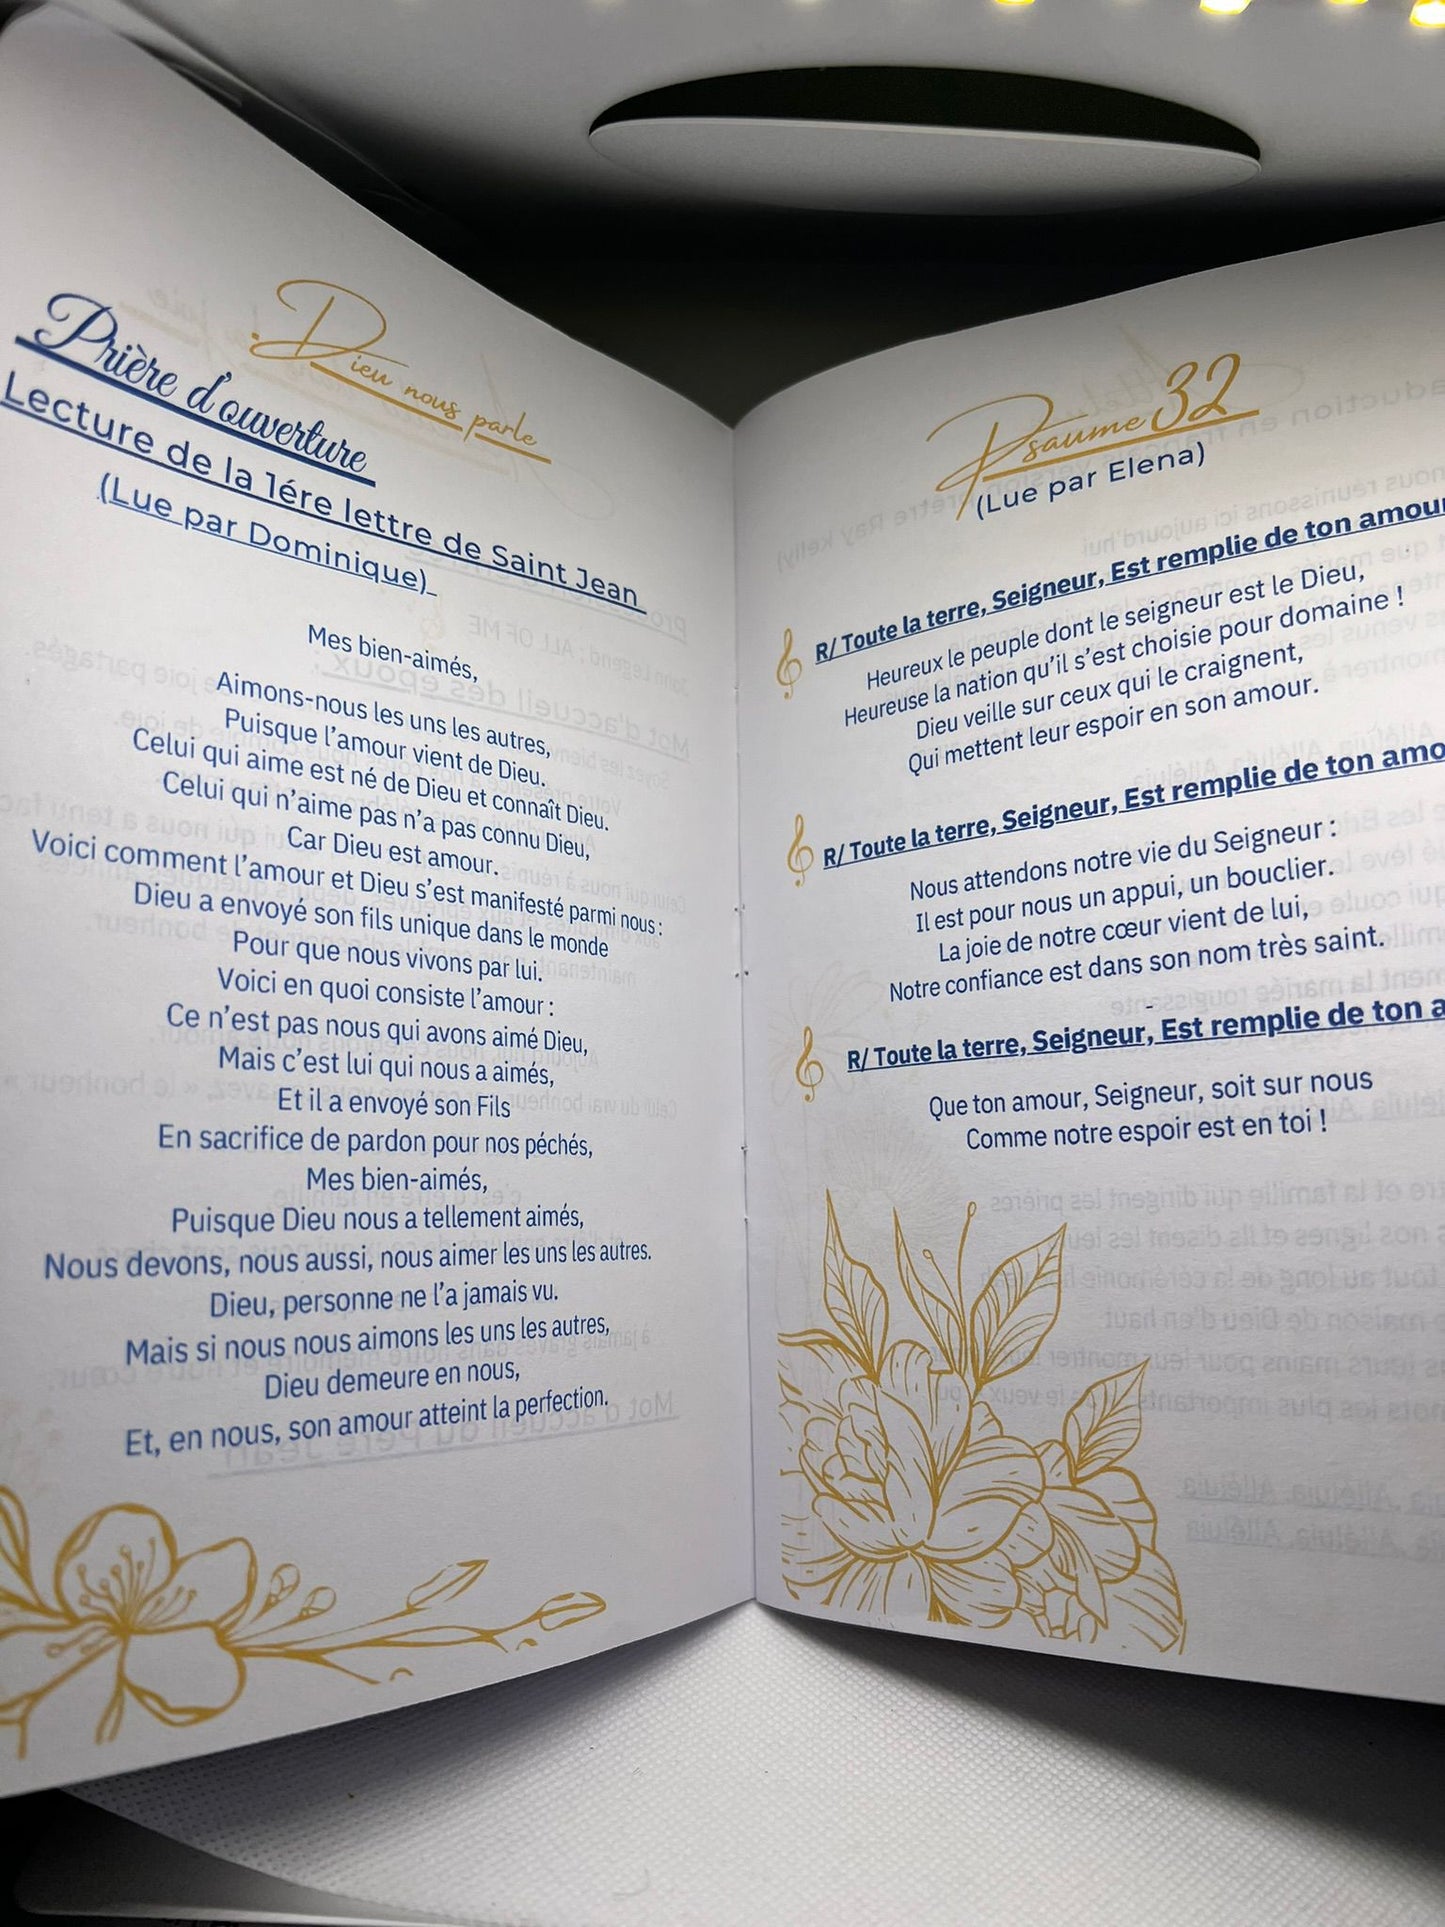 Dieu nous parle
Prière d'ouverture
Lecture de la 1ére lettre de Saint Jean
(Lue par Dominique)
Mes bien-aimés,
Aimons-nous les uns les autres,
Puisque l'amour vient de Dieu.
Celui qui aime est né de Dieu et connaît Dieu.
Celui qui n'aime pas n'a pas connu Dieu,
Car Dieu est amour.
Voici comment l'amour et Dieu s'est manifesté parmi nous :
Dieu a envoyé son fils unique dans le monde
Pour que nous vivons par lui.
Voici en quoi consiste l'amour :
Ce n'est pas nous qui avons aimé Dieu,
Mais c'est lui qui nous a aimés,
Et il a envoyé son Fils
En sacrifice de pardon pour nos péchés,
Mes bien-aimés,
Puisque Dieu nous a tellement aimés,
Nous devons, nous aussi, nous aimer les uns les autres.
Dieu, personne ne l'a jamais vu.
Mais si nous nous aimons les uns les autres,
Dieu demeure en nous,
Et, en nous, son amour atteint la perfection.
Psaume 32
(Lue par Elena)
R/ Toute la terre, Seigneur, Est remplie de ton amour
Heureux le peuple dont le seigneur est le Dieu,
Heureuse la nation qu'il s'est choisie pour domaine !
Dieu veille sur ceux qui le craignent,
Qui mettent leur espoir en son amour.
R/ Toute la terre, Seigneur, Est remplie de ton amo
Nous attendons notre vie du Seigneur :
Il est pour nous un appui, un bouclier.
La joie de notre cœur vient de lui,
Notre confiance est dans son nom très saint.
R/ Toute la terre, Seigneur, Est remplie de ton a
Que ton amour, Seigneur, soit sur nous
Comme notre espoir est en toi !